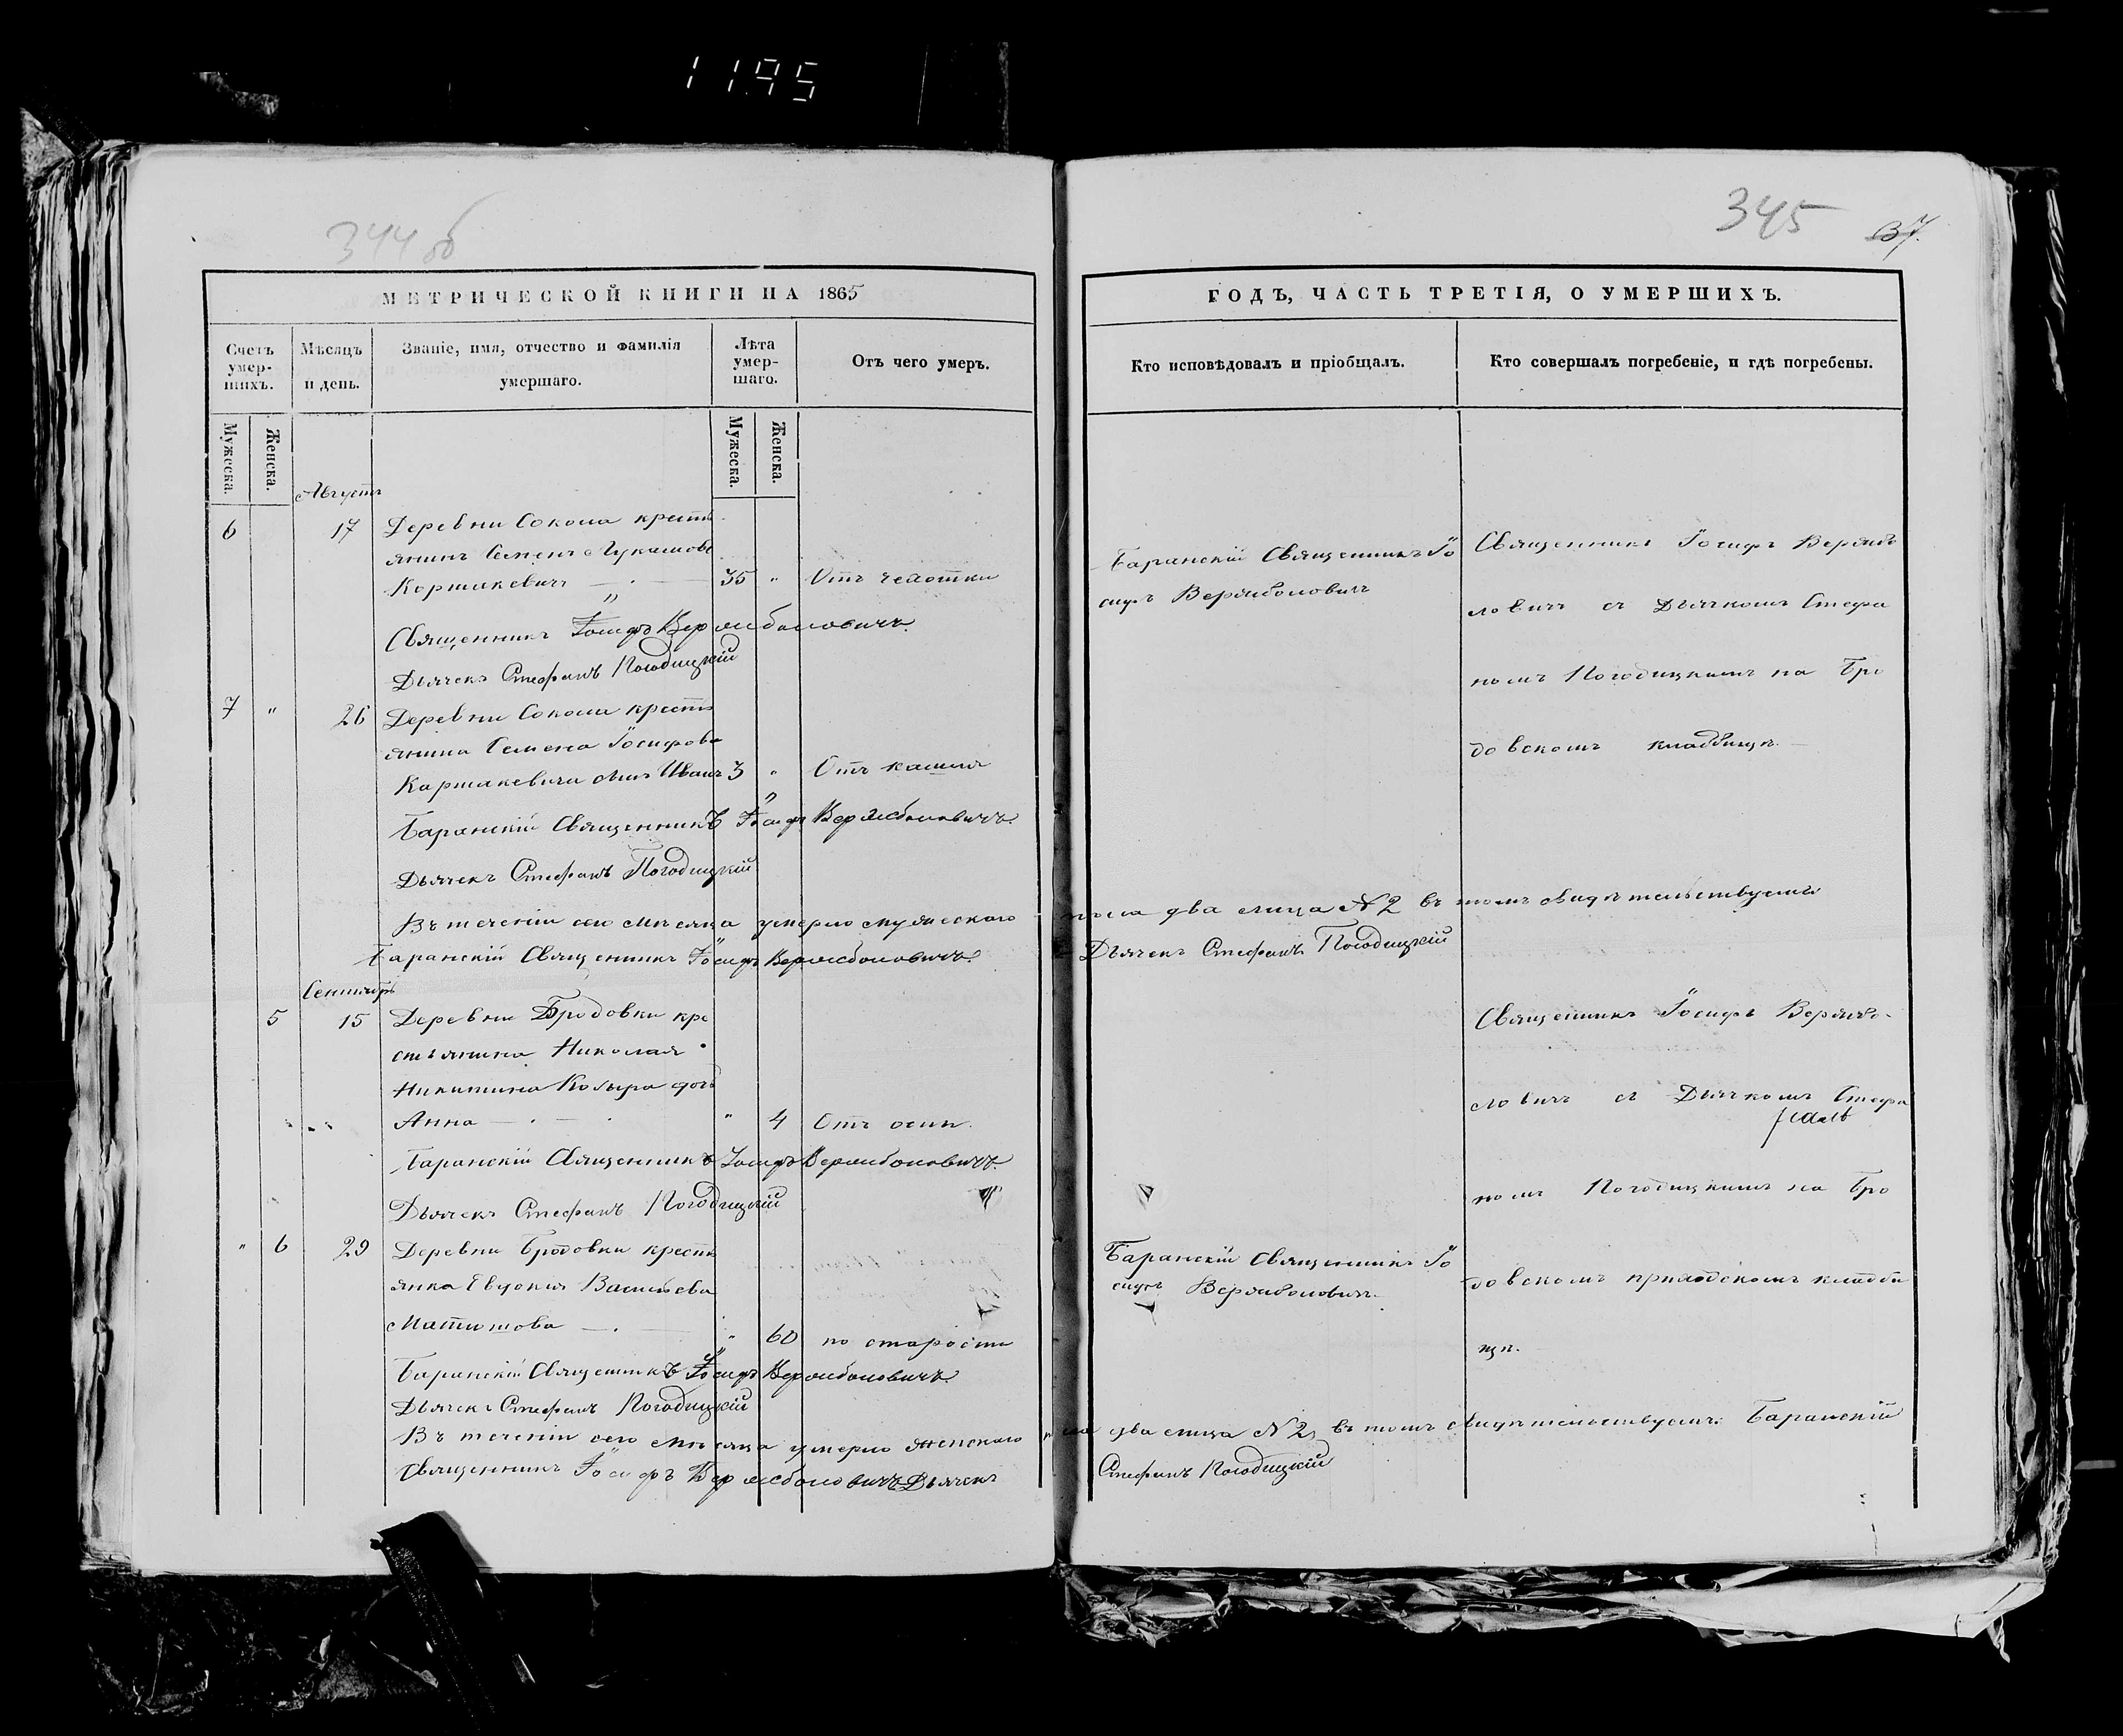 1195
344 об
345
37.
МЕТРИЧЕСКОЙ КНИГИ НА 1865
ГОДЪ, ЧАСТЬ ТРЕТІЯ, О УМЕРШИХЪ.
Счетъ умер-шихъ.
Мѣсяцъ и день.
Званіе, имя, отчество и фамилія
умершаго.
Лѣта умер-шаго.
Отъ чего умеръ.
Кто исповѣдовалъ и пріобщалъ.
Кто совершалъ погребеніе, и гдѣ погребены.
Мужеска.
Женска.
Мужеска.
Женска.
Августъ
6 17 Деревни Сокола кресть
янинъ Семенъ Лукашовъ
Коршакевичъ — 35 " Отъ чахотки
Священникъ Іосифъ Вержболовичъ.
Дьячекъ Стефанъ Погодицкій
Баранскій Священникъ Іо
сифъ Вержболовичъ
Священникъ Іосифъ Вержбо
ловичъ съ Дьячкомъ Стефа
номъ Погодицкимъ на Бро
довскомъ кладбищѣ. —
7 " 26 Деревни Сокола кресть
янина Семена Іосифова
Каршакевича сынъ Иванъ 3 " Отъ кашля
Баранскій Священникъ Іосифъ Вержболовичъ.
Дьячекъ Стефанъ Погодицкій
Въ теченіи сего мѣсяца умерло мужескаго пола два лица № 2 въ томъ свидѣтельствуемъ
Баранскій Священникъ Іосифъ Вержболовичъ. Дьячекъ Стефанъ Погодицкій
Сентябрь
5 15 Деревни Бродовки кре
стьянина Николая
Никитина Козыра дочь
Анна — " 4 Отъ оспы.
Баранскій Священникъ Іосифъ Вержболовичъ.
Дьячекъ Стефанъ Погодицкій
Священникъ Іосифъ Вержбо-
ловичъ съ Дьячкомъ Стефа
номъ Погодицкимъ на Бро
довскомъ приходскомъ кладби
щѣ.
" 6 29 Деревни Бродовки кресть
янка Евдокія Васильева
Матюшова — " 60 по старости
Баранскій Священникъ Іосифъ Вержболовичъ.
Дьячекъ Стефанъ Погодицкій
Баранскій Священникъ Іо
сифъ Вержболовичъ.
Въ теченіи сего мѣсяца умерло женскаго пола два лица № 2, въ томъ свидѣтельствуемъ: Баранскій
Священникъ Іосифъ Вержболовичъ Дьячекъ Стефанъ Погодицкій